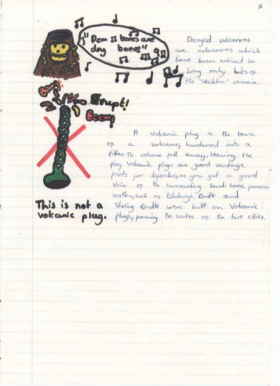 "Dem bones are
dry bones"
Denged volcanoes
are volcanoes which
have been eroded so
long only bits of
the "skeleton" remain.
Erupt!
Boom
A volcanic plug is the core
of a volcano, hardened into a
pillar the volcano fell away, leaving the
plug. Volcanic plugs are good vantage
points for defenders you get a good
view of the surrounding countryside,
castles such as Edinburgh Castle and
Stirling Castle were built on volcanic
plugs, proving the worth of the two cities.
This is not a
volcanic plug.